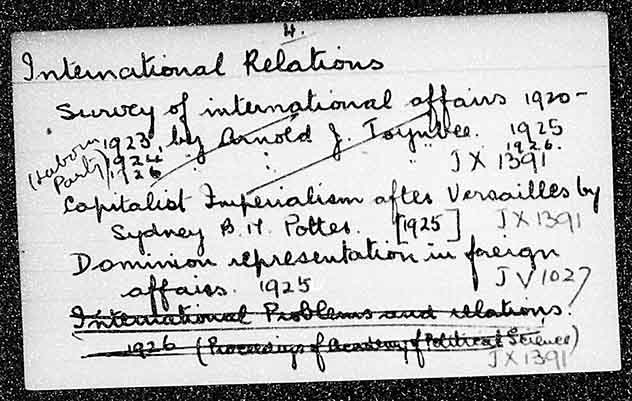 4.
International Relations
Survey of international affairs 1920-
1923, by Arnold J. Toynbee. 1925
1924 " " 1926.
(Labour Party) 1926 JX 1391
Capitalist Imperialism after Versailles by
Sydney B. M. Potter. [1925] JX1391
Dominion representation in foreign
affairs. 1925 JV 1027
International Problems and relations.
1926 (Proceedings of Academy of Political Science)
JX1391